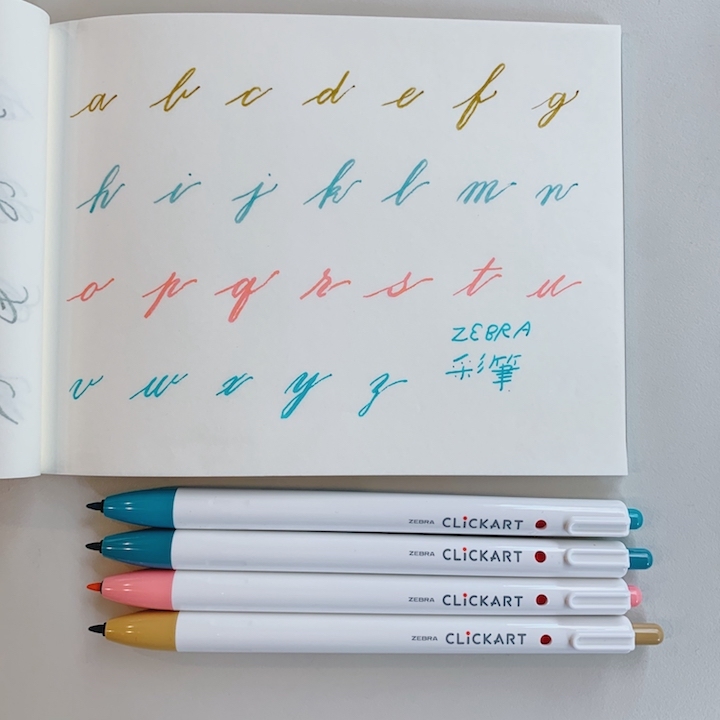 a b c d e f g
h i j k l m n
o p q r s t u
v w x y z
ZEBRA
彩筆
ZEBRA CLiCKART
ZEBRA CLiCKART
ZEBRA CLiCKART
ZEBRA CLiCKART